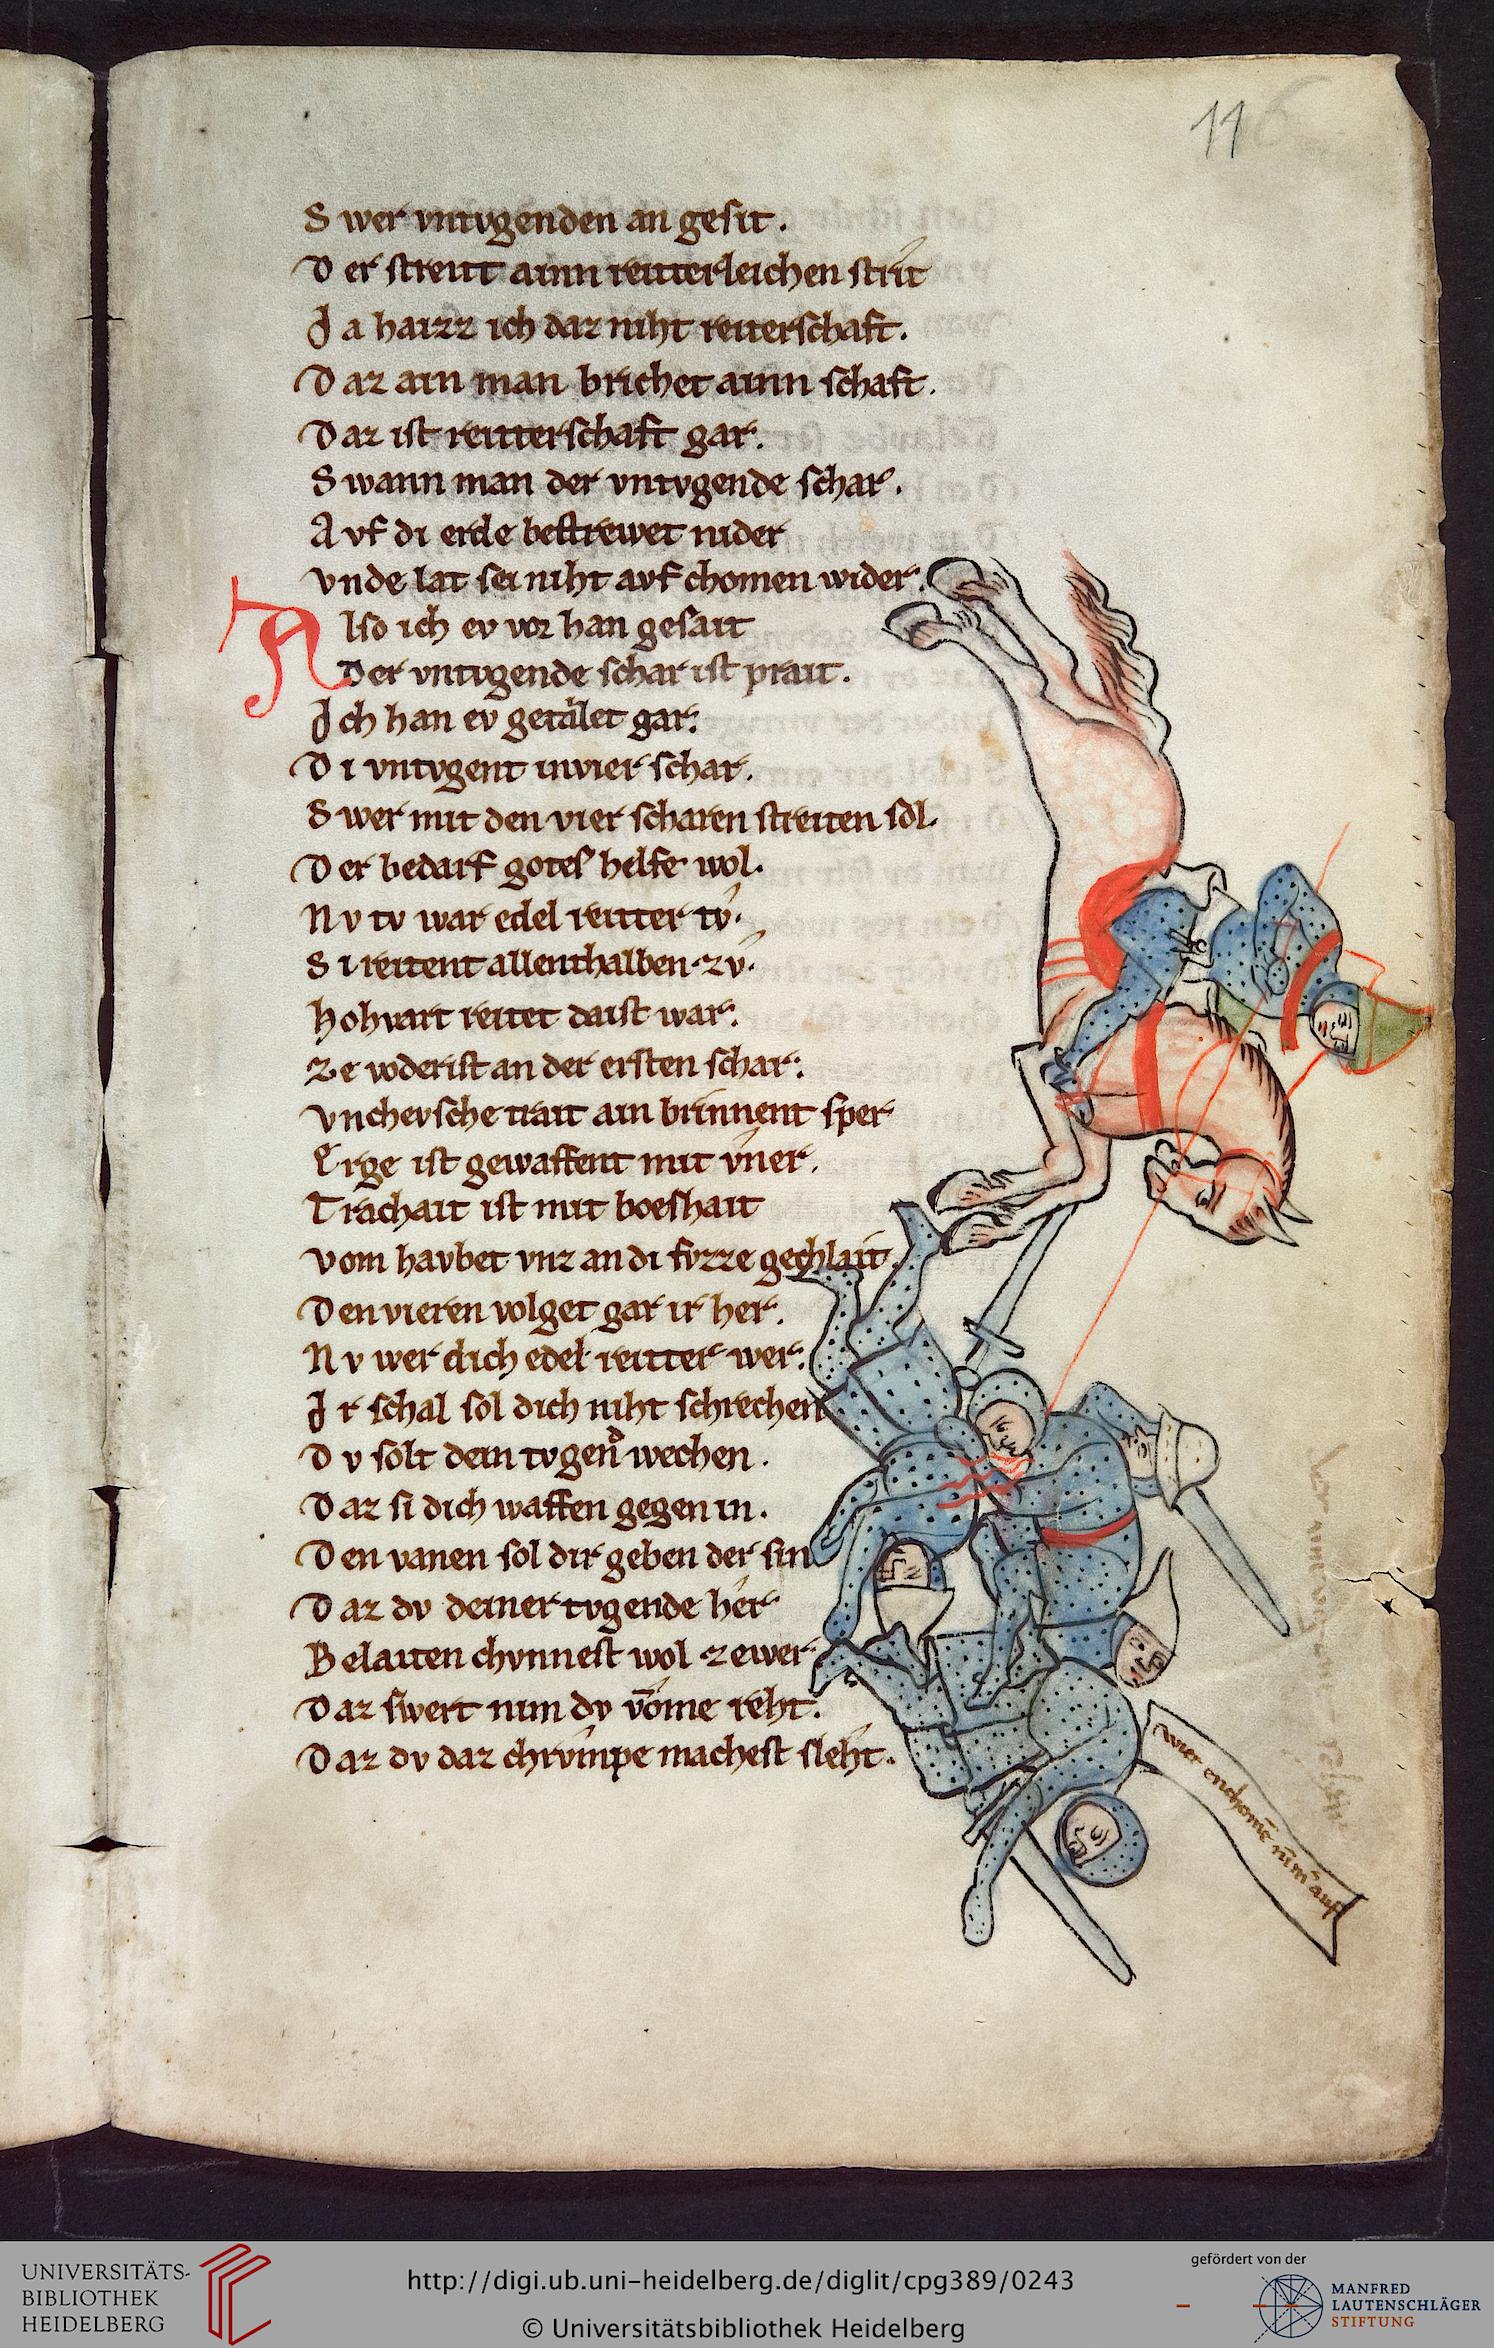 116
S wer vntvgenden an gesit.
D er streitt ainn reitterleichen strît
J a haizz ich daz niht reiterschaft.
D az ain man brichet ainn schaft.
D az ist reitterschaft gar.
S wann man der vntvgende schar.
A vf di erde bestrewet nider
vnde lat sei niht avf chomen wider.
A lso ich ev vor han gesait
Der vntvgende schar ist prait.
J ch han ev getålet gar.
D i vntvgent in vier schar.
S wer mit den vier scharen streiten sol.
D er bedarf gotes helfe wol.
N v tv war edel reitter tv̂.
S i reitent allenthalben zv̂.
hohvart reitet daist war.
ze voderist an der ersten schar.
vnchevsche trait ain brinnent sper
Erge ist gewaffent mit v̂ner.
Trachait ist mit boeshait
vom havbet vnz an di fvzze gechlait.
D en vieren volget gar ir her.
N v wer dich edel reitter wer.
J r schal sol dich niht schrechen
D v solt dein tvgend wechen.
D az si dich waffen gegen in.
D en vanen sol dir geben der sin
D az dv deiner tvgende her
B elaiten chvnnest wol ze wer
D az swert nim dv vōme reht.
D az dv daz chrvmpe machest sleht.
wier enchomē nim̄ auf
UNIVERSITÄTS-
BIBLIOTHEK
HEIDELBERG
http://digi.ub.uni-heidelberg.de/diglit/cpg389/0243
© Universitätsbibliothek Heidelberg
gefördert von der
MANFRED
LAUTENSCHLÄGER
STIFTUNG